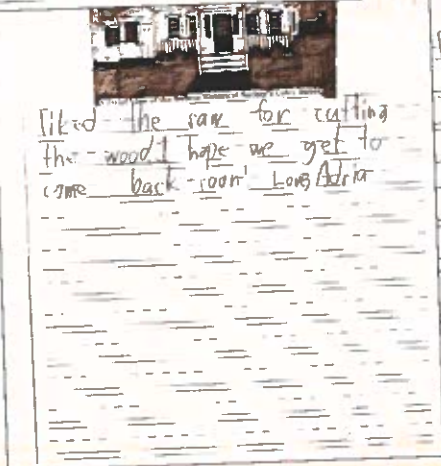 I liked the saw for cutting
the wood I hope we get to
come back soon! Love, Adria